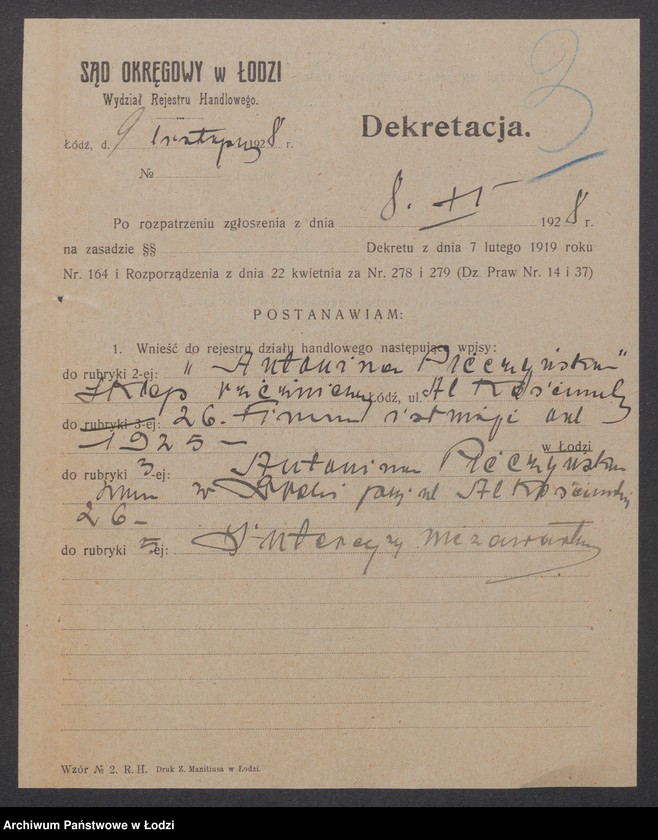 3
SĄD OKRĘGOWY w ŁODZI
Wydział Rejestru Handlowego.
Dekretacja.
Łódź, d. 9 listopada 1928 r.
№
Po rozpatrzeniu zgłoszenia z dnia 8. XI 1928 r.
na zasadzie §§ Dekretu z dnia 7 lutego 1919 roku
Nr. 164 i Rozporządzenia z dnia 22 kwietnia za Nr. 278 i 279 (Dz. Praw Nr. 14 i 37)
POSTANAWIAM:
1. Wnieść do rejestru działu handlowego następujące wpisy:
do rubryki 2-ej: "Antonina Pięczyńska"
Sklep rzeźniczy Łódź, ul. Al Kościuszki
do rubryki 3-ej: 26. Firma istnieje od
1925 –
w Łodzi
do rubryki 3-ej: Antonina Pięczyńska
zam w Łodzi przy ul Al Kościuszki
26 –
do rubryki 5-ej: Intercyzy nie zawarła
Wzór № 2. R. H. Druk Z. Manitiusa w Łodzi.
Archiwum Państwowe w Łodzi